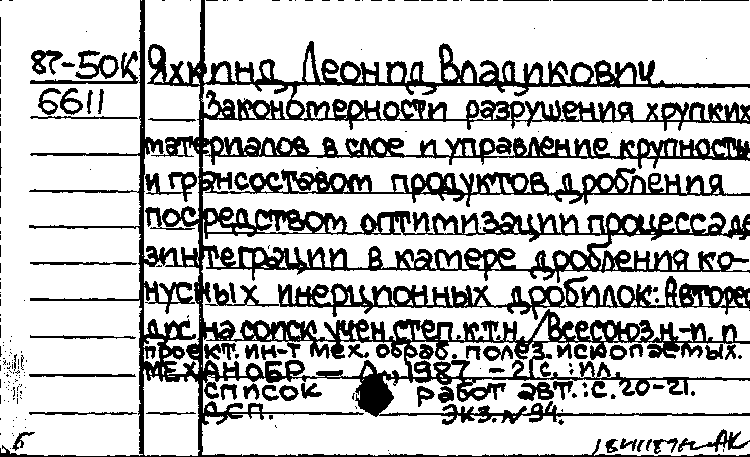 87-50К Яхкинд, Леонид Владикович.
6611 Закономерности разрушения хрупких
материалов в слое и управление крупность
и грансоставом продуктов дробления
посредством оптимизации процесса де
зинтеграции в камере дробления ко-
нусных инерционных дробилок: Авторе
дис. на соиск. учен. степ. к.т.н. / Всесоюз. н.-и. и
проект. ин-т мех. обраб. полез. ископаемых.
МЕХАНОБР. — Л., 1987. - 21с. : ил.
список работ авт.: с. 20-21.
ДСП. экз. № 94.
Б АК